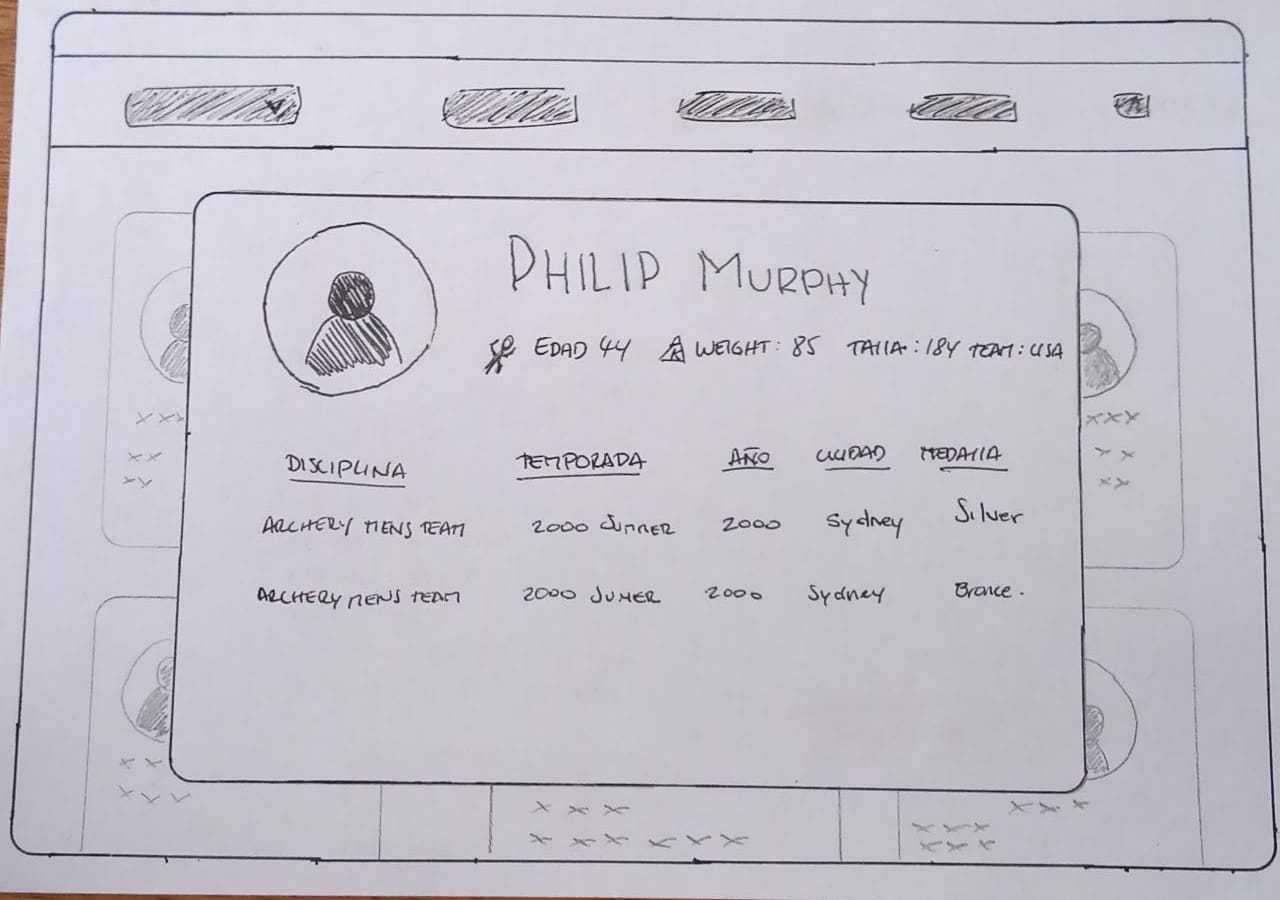 PHILIP MURPHY
EDAD 44 WEIGHT: 85 TALLA: 184 TEAM: USA
DISCIPLINA TEMPORADA AÑO CIUDAD MEDALLA
ARCHERY MENS TEAM 2000 SUMMER 2000 Sydney Silver
ARCHERY MENS TEAM 2000 SUMER 2000 Sydney Bronce.
xxx xxx
xx xx
xx xx
xx
xxx
xxx xxx
xxx xxx xxx
xxx